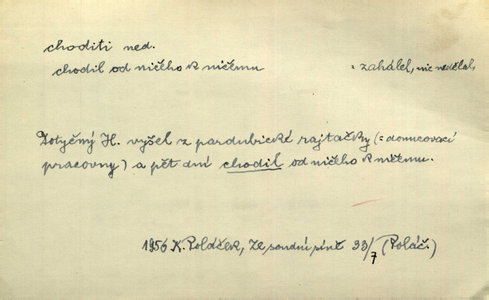 choditi ned.
chodil od ničeho k ničemu = zahálel, nic nedělal
Dotyčný H. vyšel z pardubické rajtačky (= donucovací
pracovny) a pět dní chodil od ničeho k ničemu.
1956 K. Poláček, Ze soudní síně 33/7 (Poláč.)